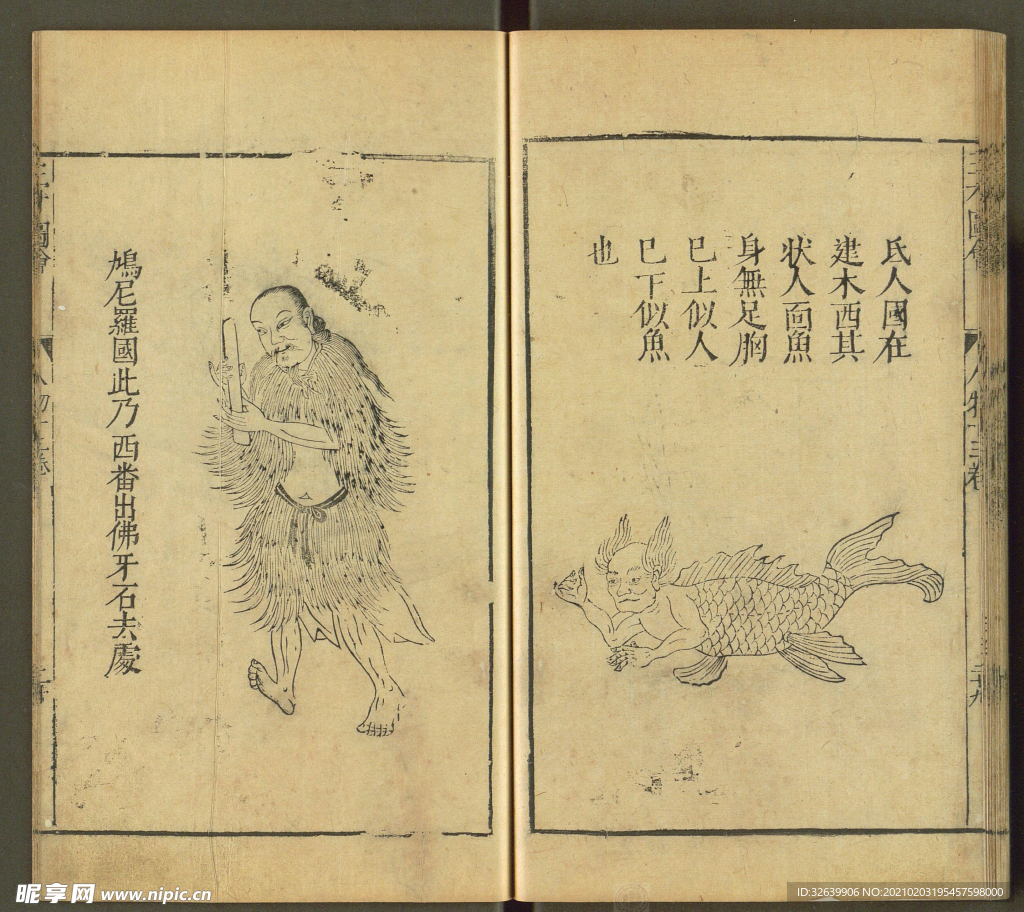 三才圖會
人物十三卷
二十九
氏人國在
建木西其
状人面魚
身無足胸
已上似人
已下似魚
也
鳩尼羅國此乃西番出佛牙石去處
三才圖會
人物十三卷
昵享网 www.nipic.cn
ID:32639906 NO:20210203195457598000